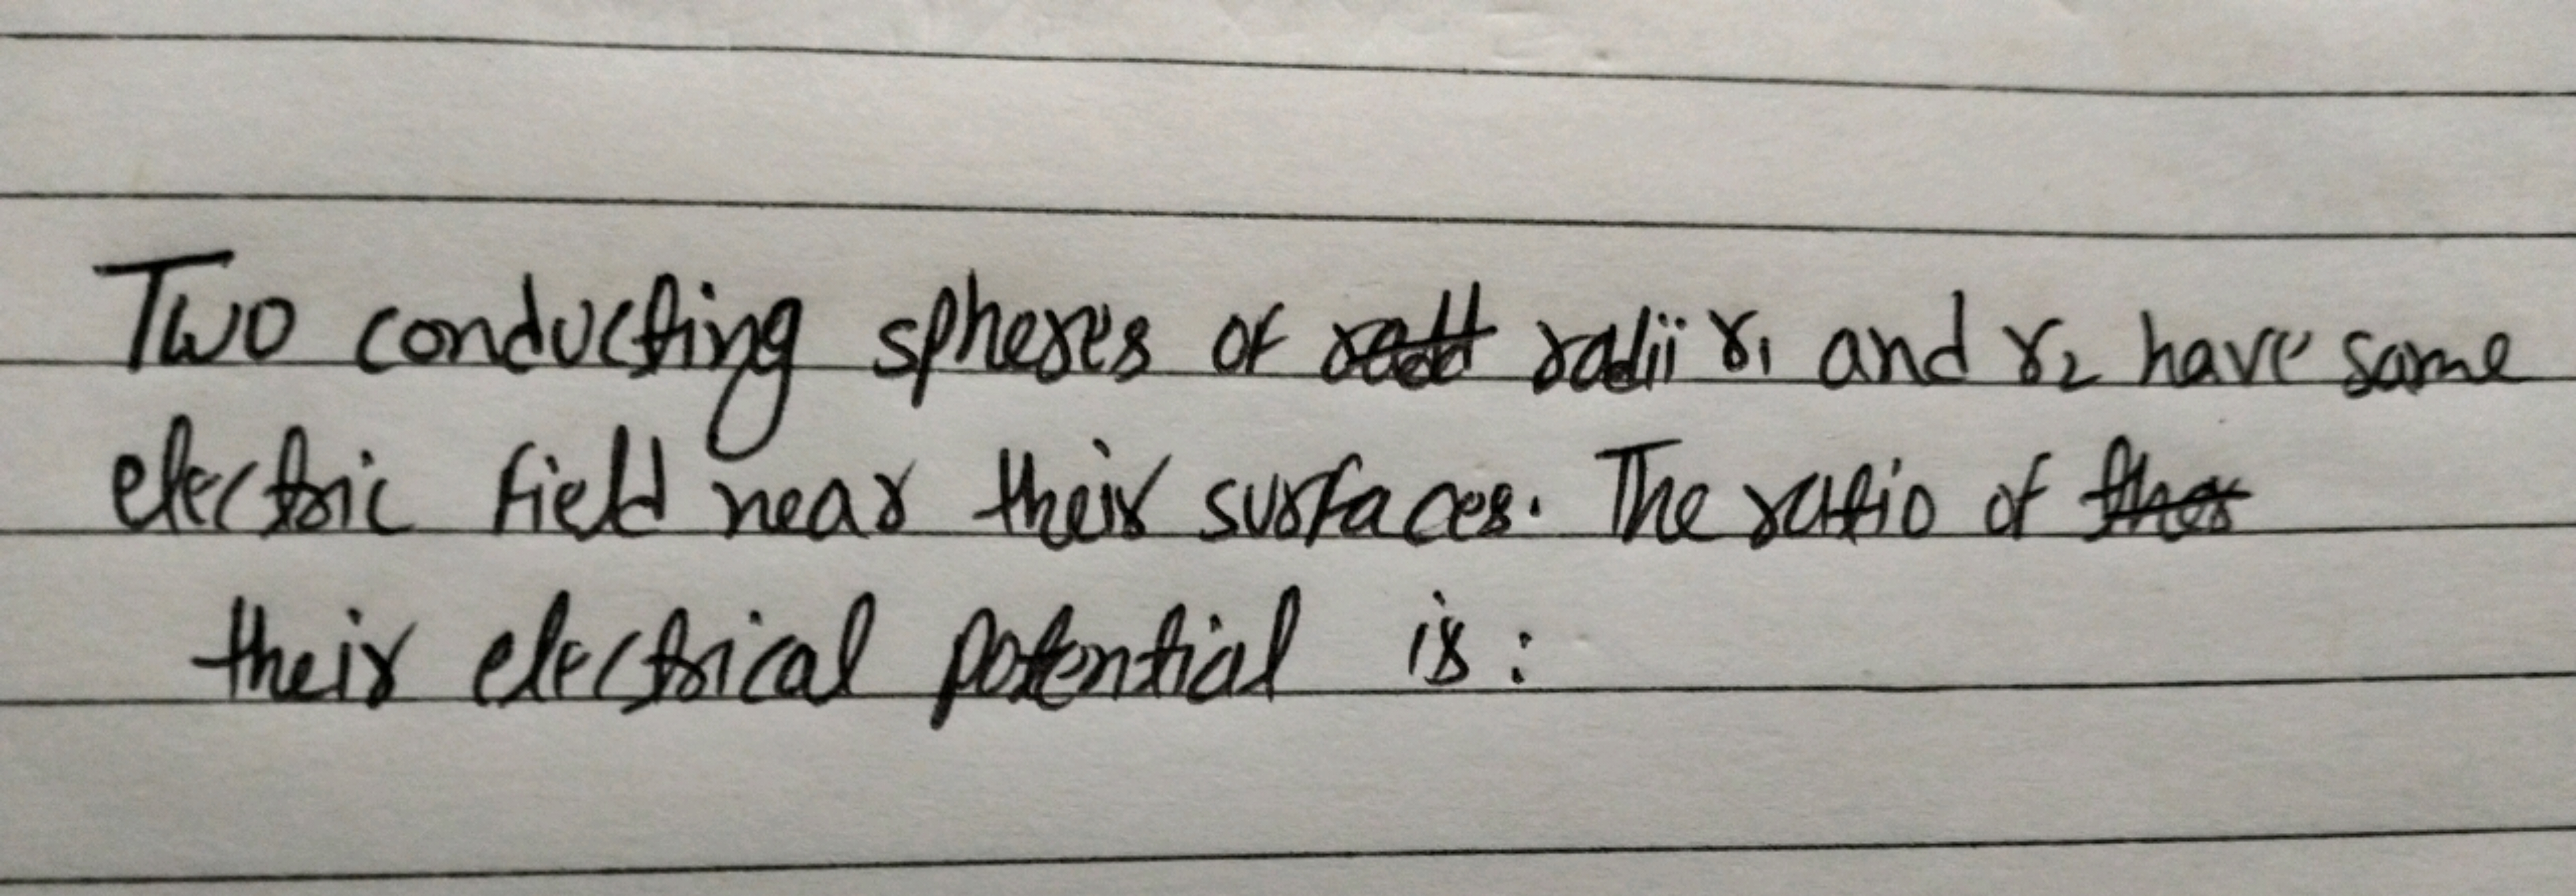 Two conducting spheres of radii r₁ and r₂ have same
electric field near their surfaces. The ratio of
their electrical potential is: